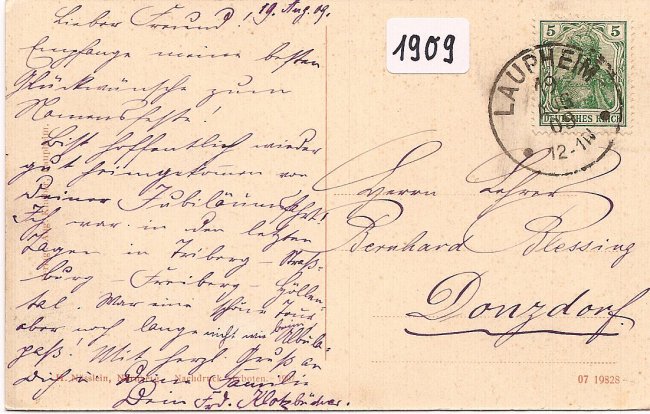 19. Aug. 09.
Lieber Freund!
Empfange meine besten
Glückwünsche zum
Namensfeste!
Bist hoffentlich wieder
gut heimgekommen von
Deiner Jubiläumsfahrt!
Ich war in den letzten
Tagen in Triberg - Straß-
burg - Freiberg - Höllen-
tal. War eine schöne Tour
aber noch lange nicht wie beim Albula-
paß! Mit herzl. Gruß an
Dich u. Deine Familie
Dein Frd. Klotzbücher.
1909
5 5
DEUTSCHES REICH
LAUPHEIM
19
AUG
09
12-1N
Herrn Lehrer
Bernhard Blessing
Donzdorf.
Nachdruck verboten.
07 19828